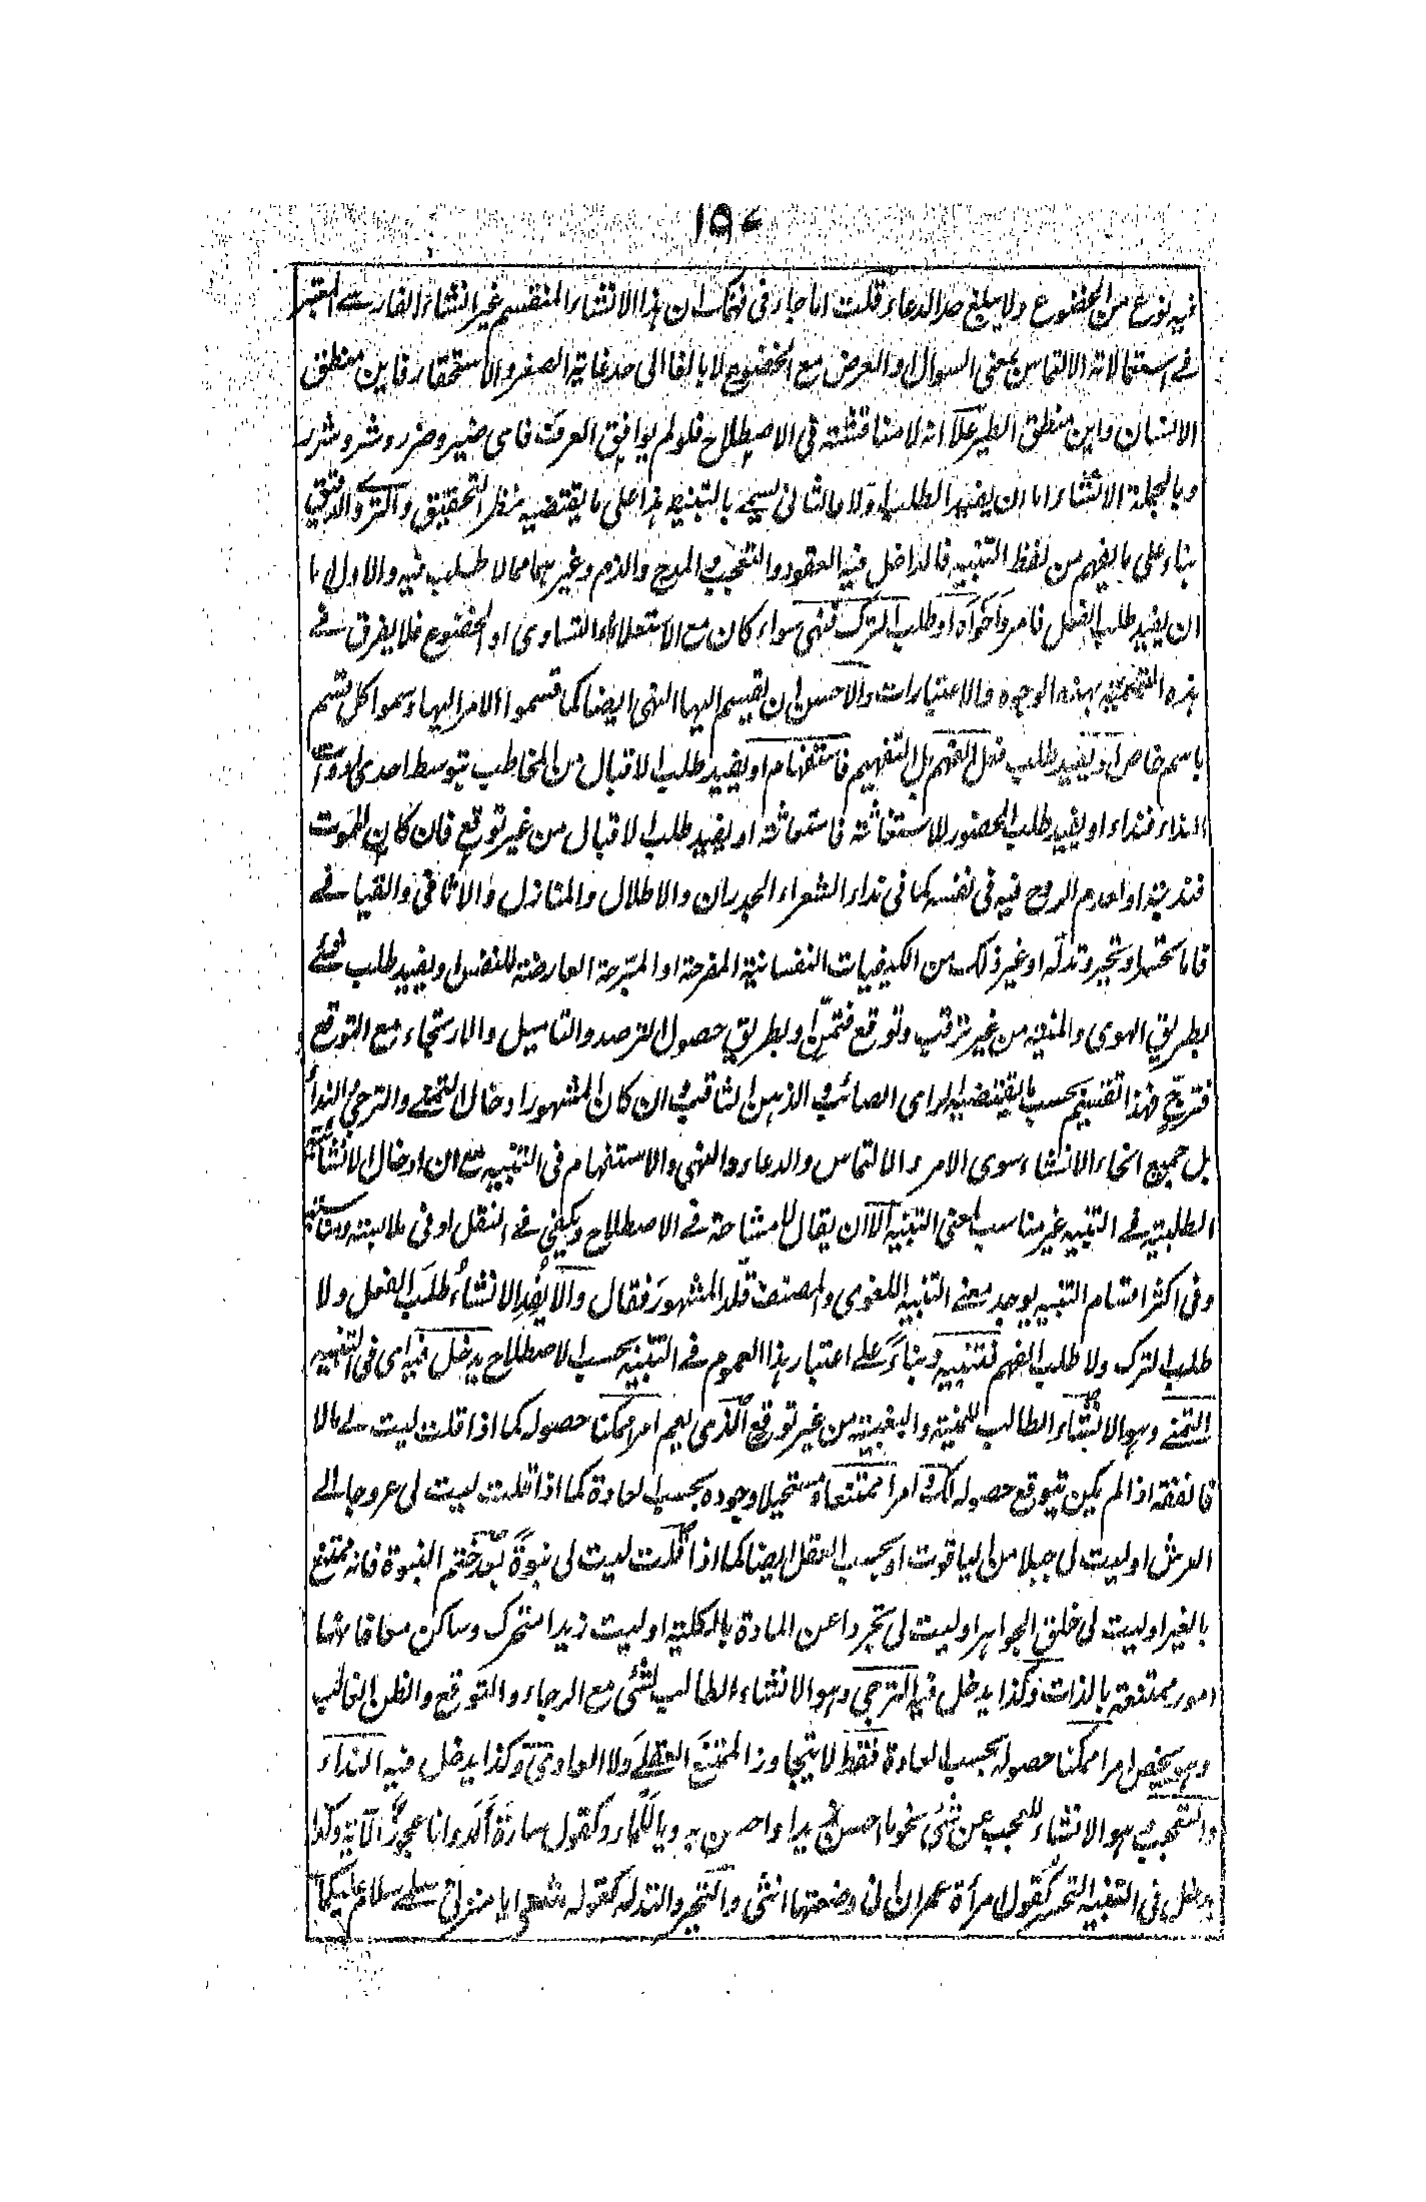 ١٥٧
فيه نوع من الخضوع ولا يبلغ حد الدعاء قلت اما جاء في فهمك ان هذا الانشاء المنقسم غير انشاء الفارسي المعتبر
في استعمالاته الالتماس بمعنى السوال والعرض مع الخضوع لا بالغا الى حد غاية الصغر والاستحقار فاين منطق
الانسان واين منطق الطير علا انه لا مناقشته في الاصطلاح فلو لم يوافق العرف فاى ضير وضرر وشر وشرر
وبالجملة الانشاء اما ان يفيد الطلب اولا والثاني يسمى بالتنبيه هذا على ما يقتضيه نظر التحقيق
بناء على ما يفهم من لفظ التنبيه فالداخل فيه العقود والتعجب والمدح والذم وغيرهما مما لا طلب فيه والاول اما
ان يفيد طلب الفعل فامر واخواه او طلب الترك فنهى سواء كان مع الاستعلاء او التساوى او الخضوع فلا يفرق في
هذه التسمية بهذه الوجوه والاعتبارات والاحسن ان يقسم اليها النهى ايضا كما قسموا الامر اليها وسموا كل قسم
باسم خاص او يفيد طلب فعل الفهم بل التفهيم فاستفهام او يفيد طلب الاقبال من المخاطب بتوسط احدى ادوات
النداء فنداء او يفيد طلب الحضور للاستغاثة فاستغاثة او يفيد طلب الاقبال من غير توقع فان كان للموت
فندبة او لعدم الروح فيه في نفسه كما في نداء الشعراء الجدران والاطلال والمنازل والاثافي والفيافي
فاما تحسر او تحير وتدله او غير ذلك من الكيفيات النفسانية المفرحة او المبرحة العارضة للنفس او يفيد طلب شئ
بطريق الهوى والمنية من غير ترقب وتوقع فتمن او بطريق حصول الترصد والتاميل والارتجاء مع التوقع
فترج فهذا تقسيم بحسب ما يقتضيه الراى الصائب والذهن الثاقب وان كان المشهور ادخال التمنى والترجى والنداء
بل جميع انحاء الانشاء سوى الامر والالتماس والدعاء والنهى والاستفهام في التنبيه مع ان ادخال الانشائية
الطلبية في التنبيه غير مناسب لمعنى التنبيه الا ان يقال لا مشاحة في الاصطلاح ويكفي في النقل ادنى ملابسة ومناسبة
وفي اكثر اقسام التنبيه يوجد معنى التنبيه اللغوى والمصنف قلد المشهور فقال والا يفد الانشاء طلب الفعل ولا
طلب الترك ولا طلب الفهم فتنبيه وبناء على اعتبار هذا العموم في التنبيه بحسب الاصطلاح يدخل فيه اى في التنبيه
التمني وهو الانشاء الطالب للمنية والبغية من غير توقع الذى يعم امرا ممكنا حصوله كما اذا قلت ليت لى مالا
فانفقه اذا لم يكن يتوقع حصوله لك او امرا ممتنعا مستحيلا وجوده بحسب العادة كما اذا قلت ليت لى عروجا الى
العرش او ليت لى جبلا من الياقوت او بحسب العقل ايضا كما اذا قلت ليت لى نبوة بعد ختم النبوة فانه ممتنع
بالغير او ليت لى خلق الجواهر او ليت لى تجردا عن المادة بالكلية او ليت زيدا متحرك وساكن معا فانها
امور ممتنعة بالذات وكذا يدخل فيه الترجى وهو الانشاء الطالب لشئ مع الرجاء والتوقع والظن الغالب
وهو يخص امرا ممكنا حصوله بحسب العادة فقط لا يتجاوز الممتنع العقلى ولا العادى وكذا يدخل فيه النداء
والتعجب هو الانشاء للعجب عن شئ نحو ما احسن زيدا واحسن به ويا للماء وكقول سارة أألد وانا عجوز الآية وكذا
يدخل في التنبيه التحسر كقول امرأة عمران انى وضعتها انثى والتحير والتدله كقوله شعر ايا منزلى سلمى سلام عليكما